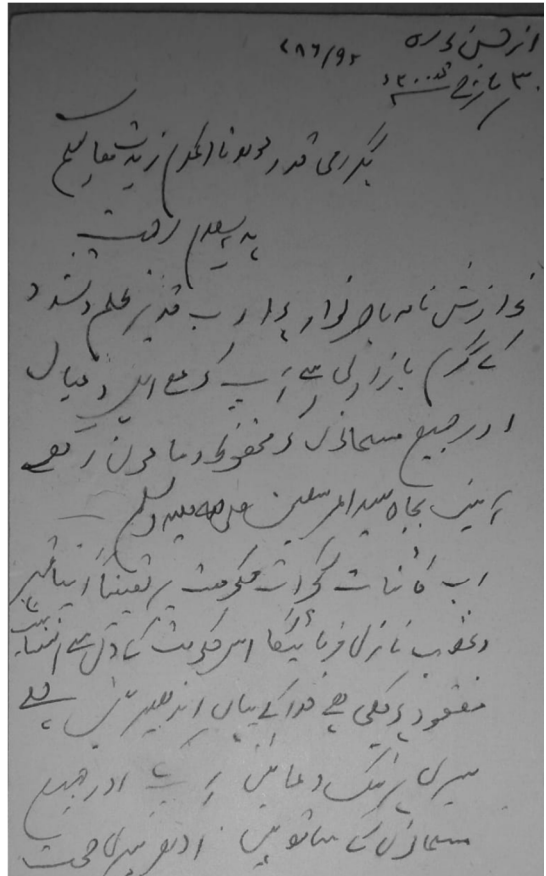 ۷۸۶/۹۲
۳۰ مارچ ۲۰۰۲ء
بگرامی قدر مولانا المکرم زیدت معالیکم
ہدیہ سلام
نوازش نامہ باصرہ نواز ہوا رب قدیر ظلم و تشدد
کے گرم بازاری سے آپ کو مع اہل و عیال
اور جمیع مسلمانوں کو محفوظ و مامون رکھے
آمین بجاہ سید المرسلین صلی اللہ علیہ وسلم
رب کائنات گجرات حکومت پر یقیناً اپنا قہر
و غضب نازل فرمائیگا اس حکومت کے دل سے انسانیت
مفقود ہو چکی ہے خدا کے یہاں اندھیر نہیں ہے
میری نیک دعائیں آپ اور جمیع
مسلمانوں کے ساتھ ہیں ادھر میری صحت